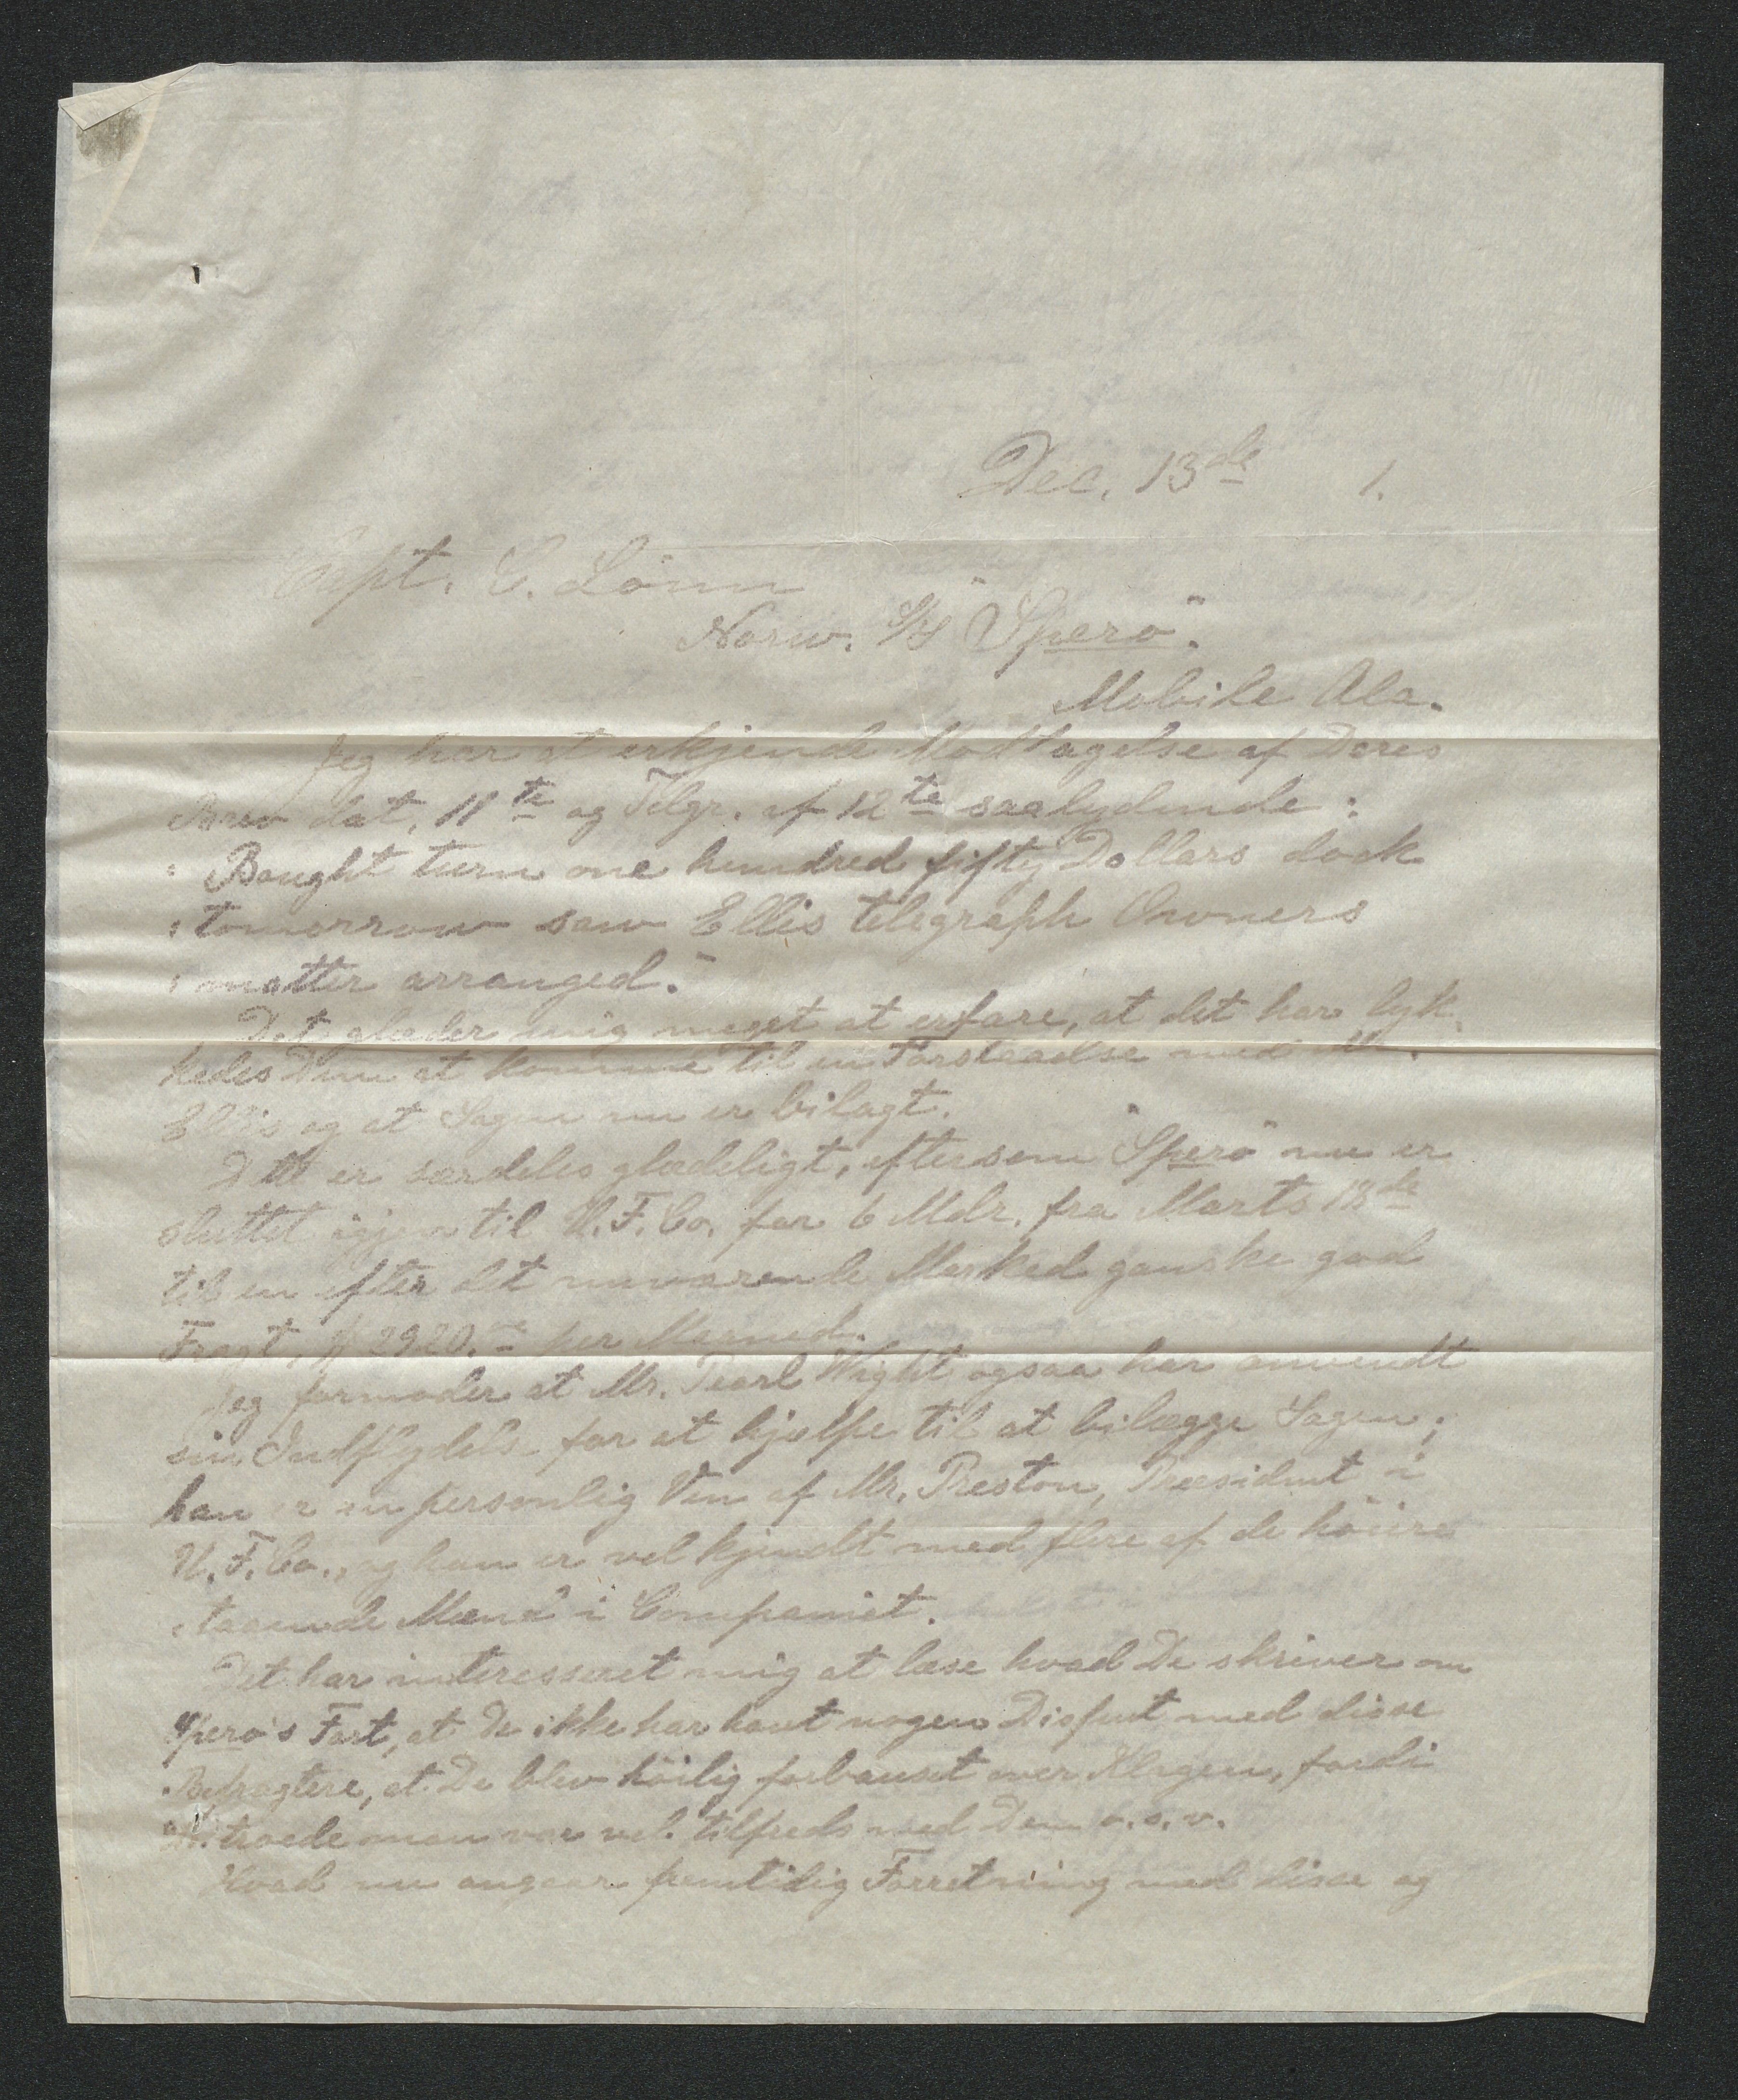 Dec. 13de 1.
Capt. E. Lönn
Norw. S/S "Spero".
Mobile Ala.
Jeg har at erkjende Modtagelse af Deres
Brev dat. 11te og Telgr. af 12te saalydende:
"Bought turn one hundred fifty Dollars dock
"tomorrow saw Ellis telegraph Owners
"matter arranged."
Det glæder mig meget at erfare, at det har lyk-
kedes Dem at komme til en Forstaaelse med Mr.
Ellis og at Sagen nu er bilagt.
Dette er særdeles glædeligt, eftersom "Spero" nu er
sluttet igjen til U. F. Co. for 6 Mdr. fra Marts 18de
til en efter det nuværende Marked ganske god
Fragt, $ 2920.- per Maaned.
Jeg formoder at Mr. Pearl Wight ogsaa har anvendt
sin Indflydelse for at hjælpe til at bilægge Sagen;
han er en personlig Ven af Mr. Preston, Præsident i
U. F. Co., og han er vel kjendt med flere af de höiere
staaende Mænd i Compæniet.
Det har interesseret mig at læse hvad De skriver om
Spero's Fart, at De ikke har havt nogen Disput med disse
Befragtere, at De blev höilig forbauset over Klagen, fordi
De troede man var vel tilfreds med Dem o.s.v.
Hvad nu angaar fremtidig Forretning med disse og